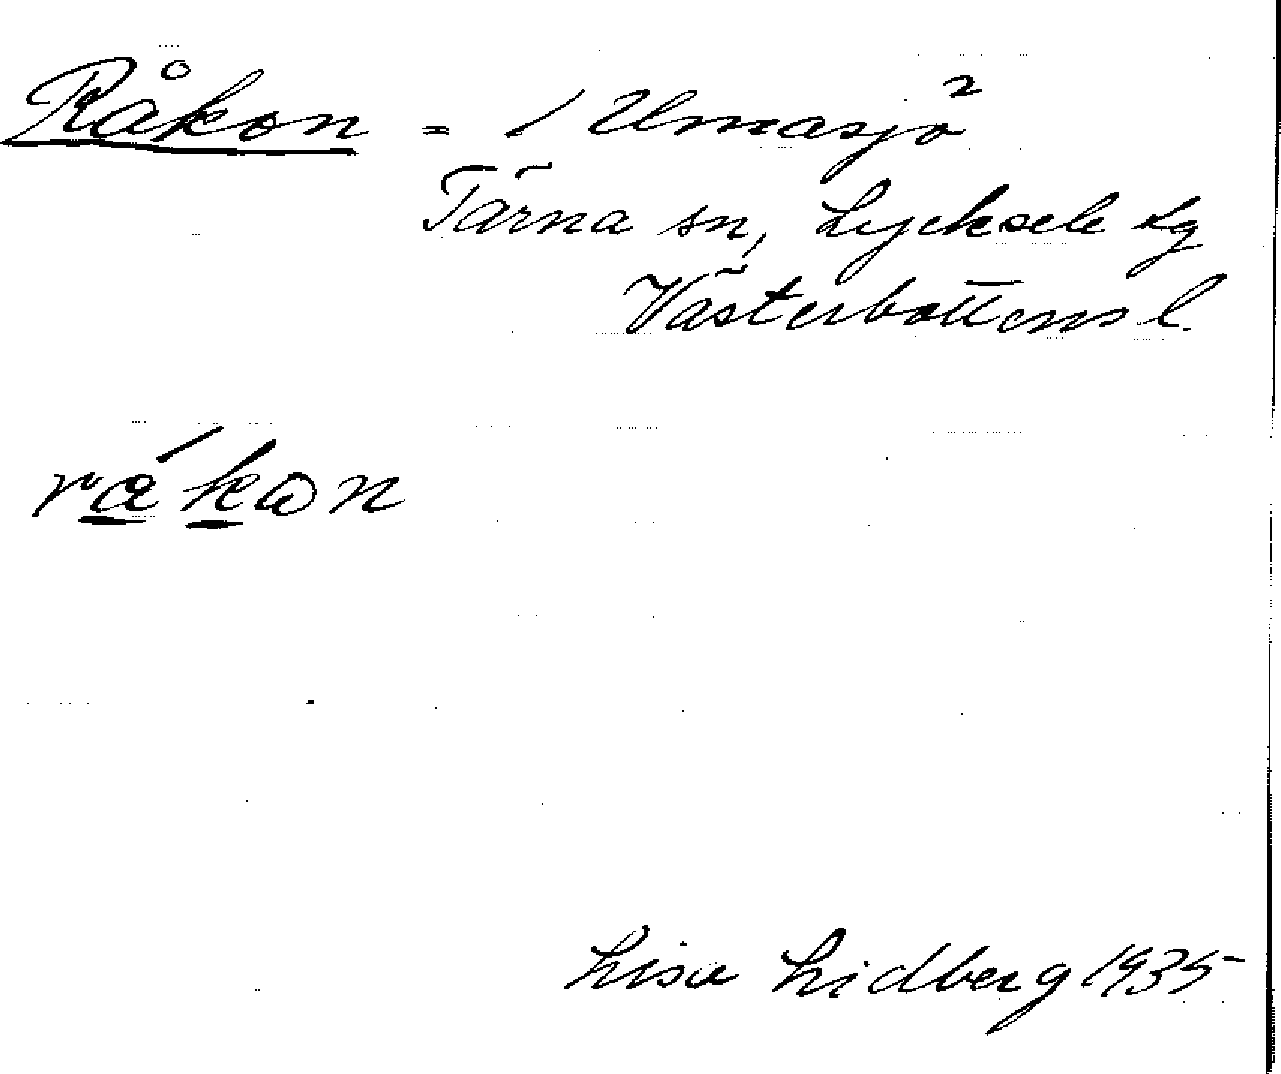 Råkon - / Umasjö
Tärna sn, Lycksele lg
Västerbottens l.
råkon
Lisa Lidberg 1935